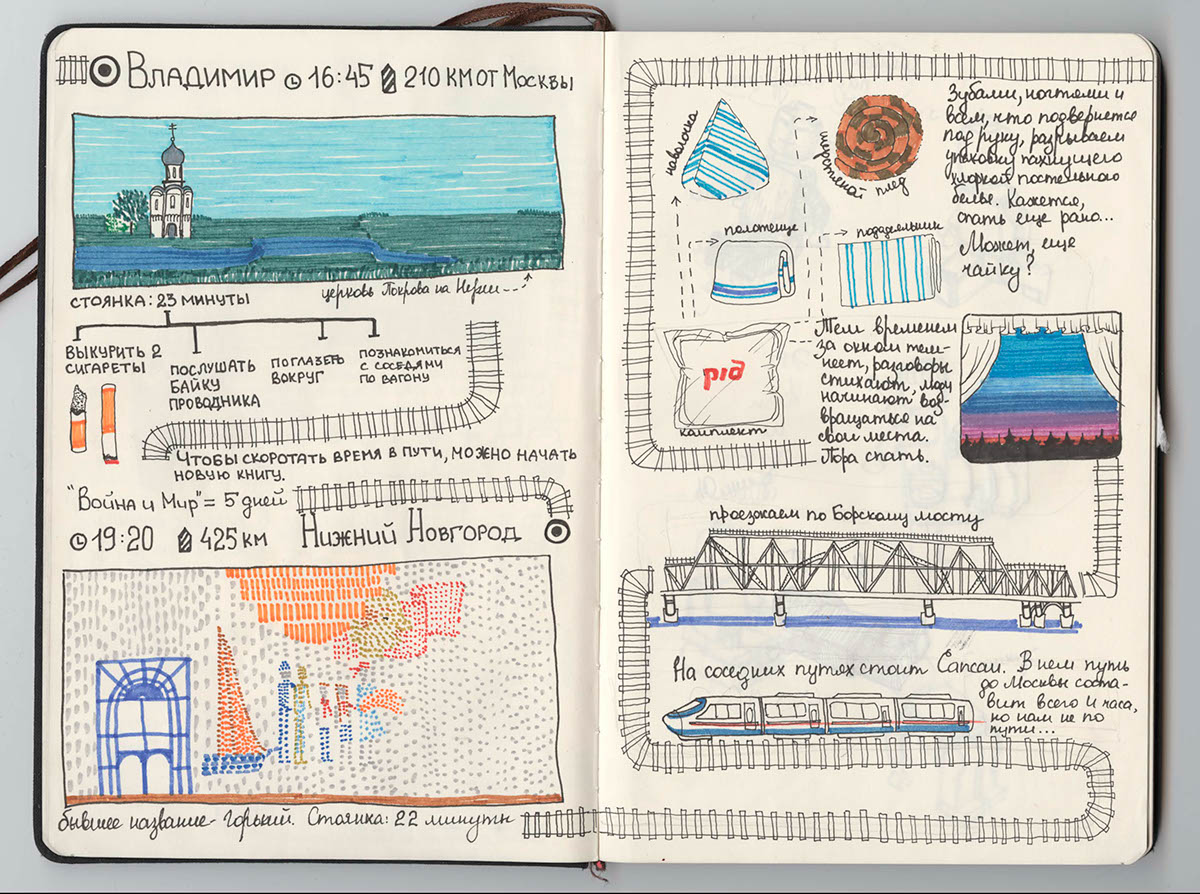 Владимир 16:45 210 км от Москвы
церковь Покрова на Нерли
стоянка: 23 минуты
выкурить 2
сигареты
послушать
байку
проводника
поглазеть
вокруг
познакомиться
с соседями
по вагону
Чтобы скоротать время в пути, можно начать
новую книгу.
"Война и Мир" = 5 дней
19:20 425 км Нижний Новгород
бывшее название - Горький. Стоянка: 22 минуты
наволочка
шерстяной плед
полотенце
пододеяльник
ржд
комплект
Зубами, ногтями и
всем, что подвернется
под руку, разрываем
упаковку пахнущего
хлоркой постельного
белья. Кажется,
спать еще рано...
Может, еще
чайку?
Тем временем
за окном тем-
неет, разговоры
стихают, люди
начинают воз-
вращаться на
свои места.
Пора спать.
проезжаем по Борскому мосту
На соседних путях стоит Сапсан. В нем путь
до Москвы соста-
вит всего 4 часа,
но нам не по
пути...